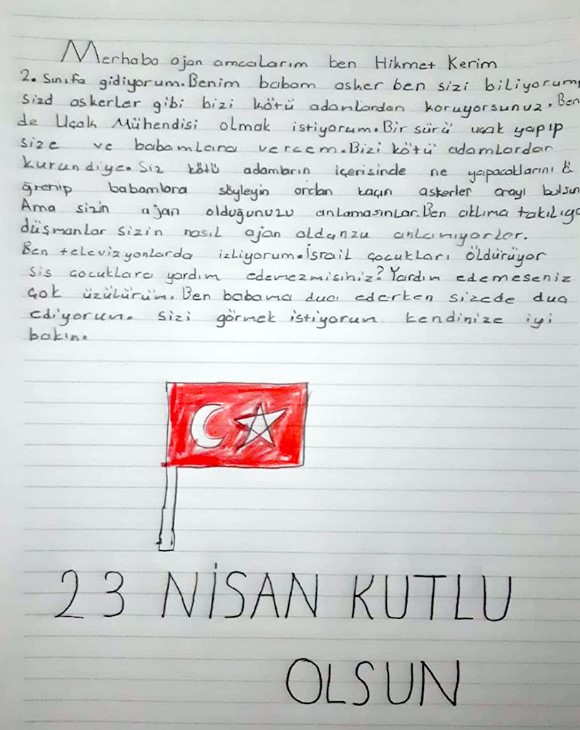 Merhaba ajan amcalarım ben Hikmet Kerim
2. sınıfa gidiyorum. Benim babam asker ben sizi biliyorum
sizd askerler gibi bizi kötü adamlardan koruyorsunuz. Ben
de Uçak Mühendisi olmak istiyorum. Bir sürü uçak yapıp
size ve babamlara vercem. Bizi kötü adamlardan
kurun diye. Siz kötü adamların içerisinde ne yapacaklarını ö
ğrenip babamlara söyleyin ordan kaçın askerler orayı bulsun
Ama sizin ajan olduğunuzu anlamasınlar. Ben aklıma takılıyo
düşmanlar sizin nasıl ajan oldanzu anlamıyorlar.
Ben televizyonlarda izliyorum. İsrail çocukları öldürüyor
sis çocuklara yardım edemezmisiniz? Yardın edemeseniz
çok üzülürün. Ben babama dua ederken sizede dua
ediyorun. sizi görnek istiyorun kendinize iyi
bakın.
23 NİSAN KUTLU
OLSUN